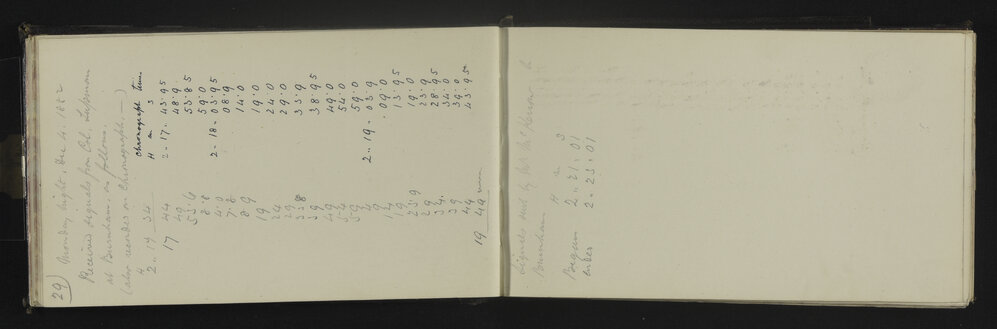 29) Monday night, Dec 4. 1882
Received signals from Col.
at Burnham, as follows
(also recorded on Chronograph. —)
Chronograph time
H m s
2 17 34
H m s
17 44 2 - 17 - 43.95
49 48.9
53.6 53.85
59.0
4.0 2 - 18 - 03.95
08.9
8.9 14.0
19 19.0
24 24.0
29 29.0
33.8 33.9
39 38.95
49 49.0
54 54.0
59 59.0
2 - 19 - 03.9
09.0
13.95
19 19.0
23.9 23.9
29 28.95
34 34.0
39 39.0
44 43.95
19 49
Signals sent by Mr
Burnham
H m s
Began 2 - 21 - 01
Ends 2 - 23 - 01